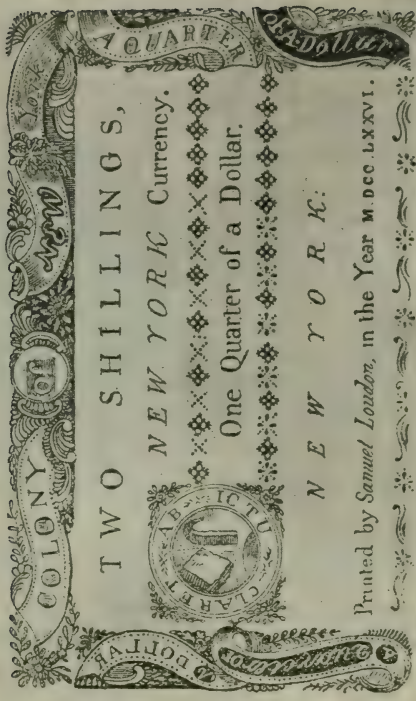 COLONY OF New York
A QUARTER of A Dollar
TWO SHILLINGS,
NEW YORK Currency.
One Quarter of a Dollar.
AB ICTU CLARET
NEW YORK:
Printed by Samuel Loudon, in the Year M.DCC.LXXVI.
A QUARTER of A DOLLAR